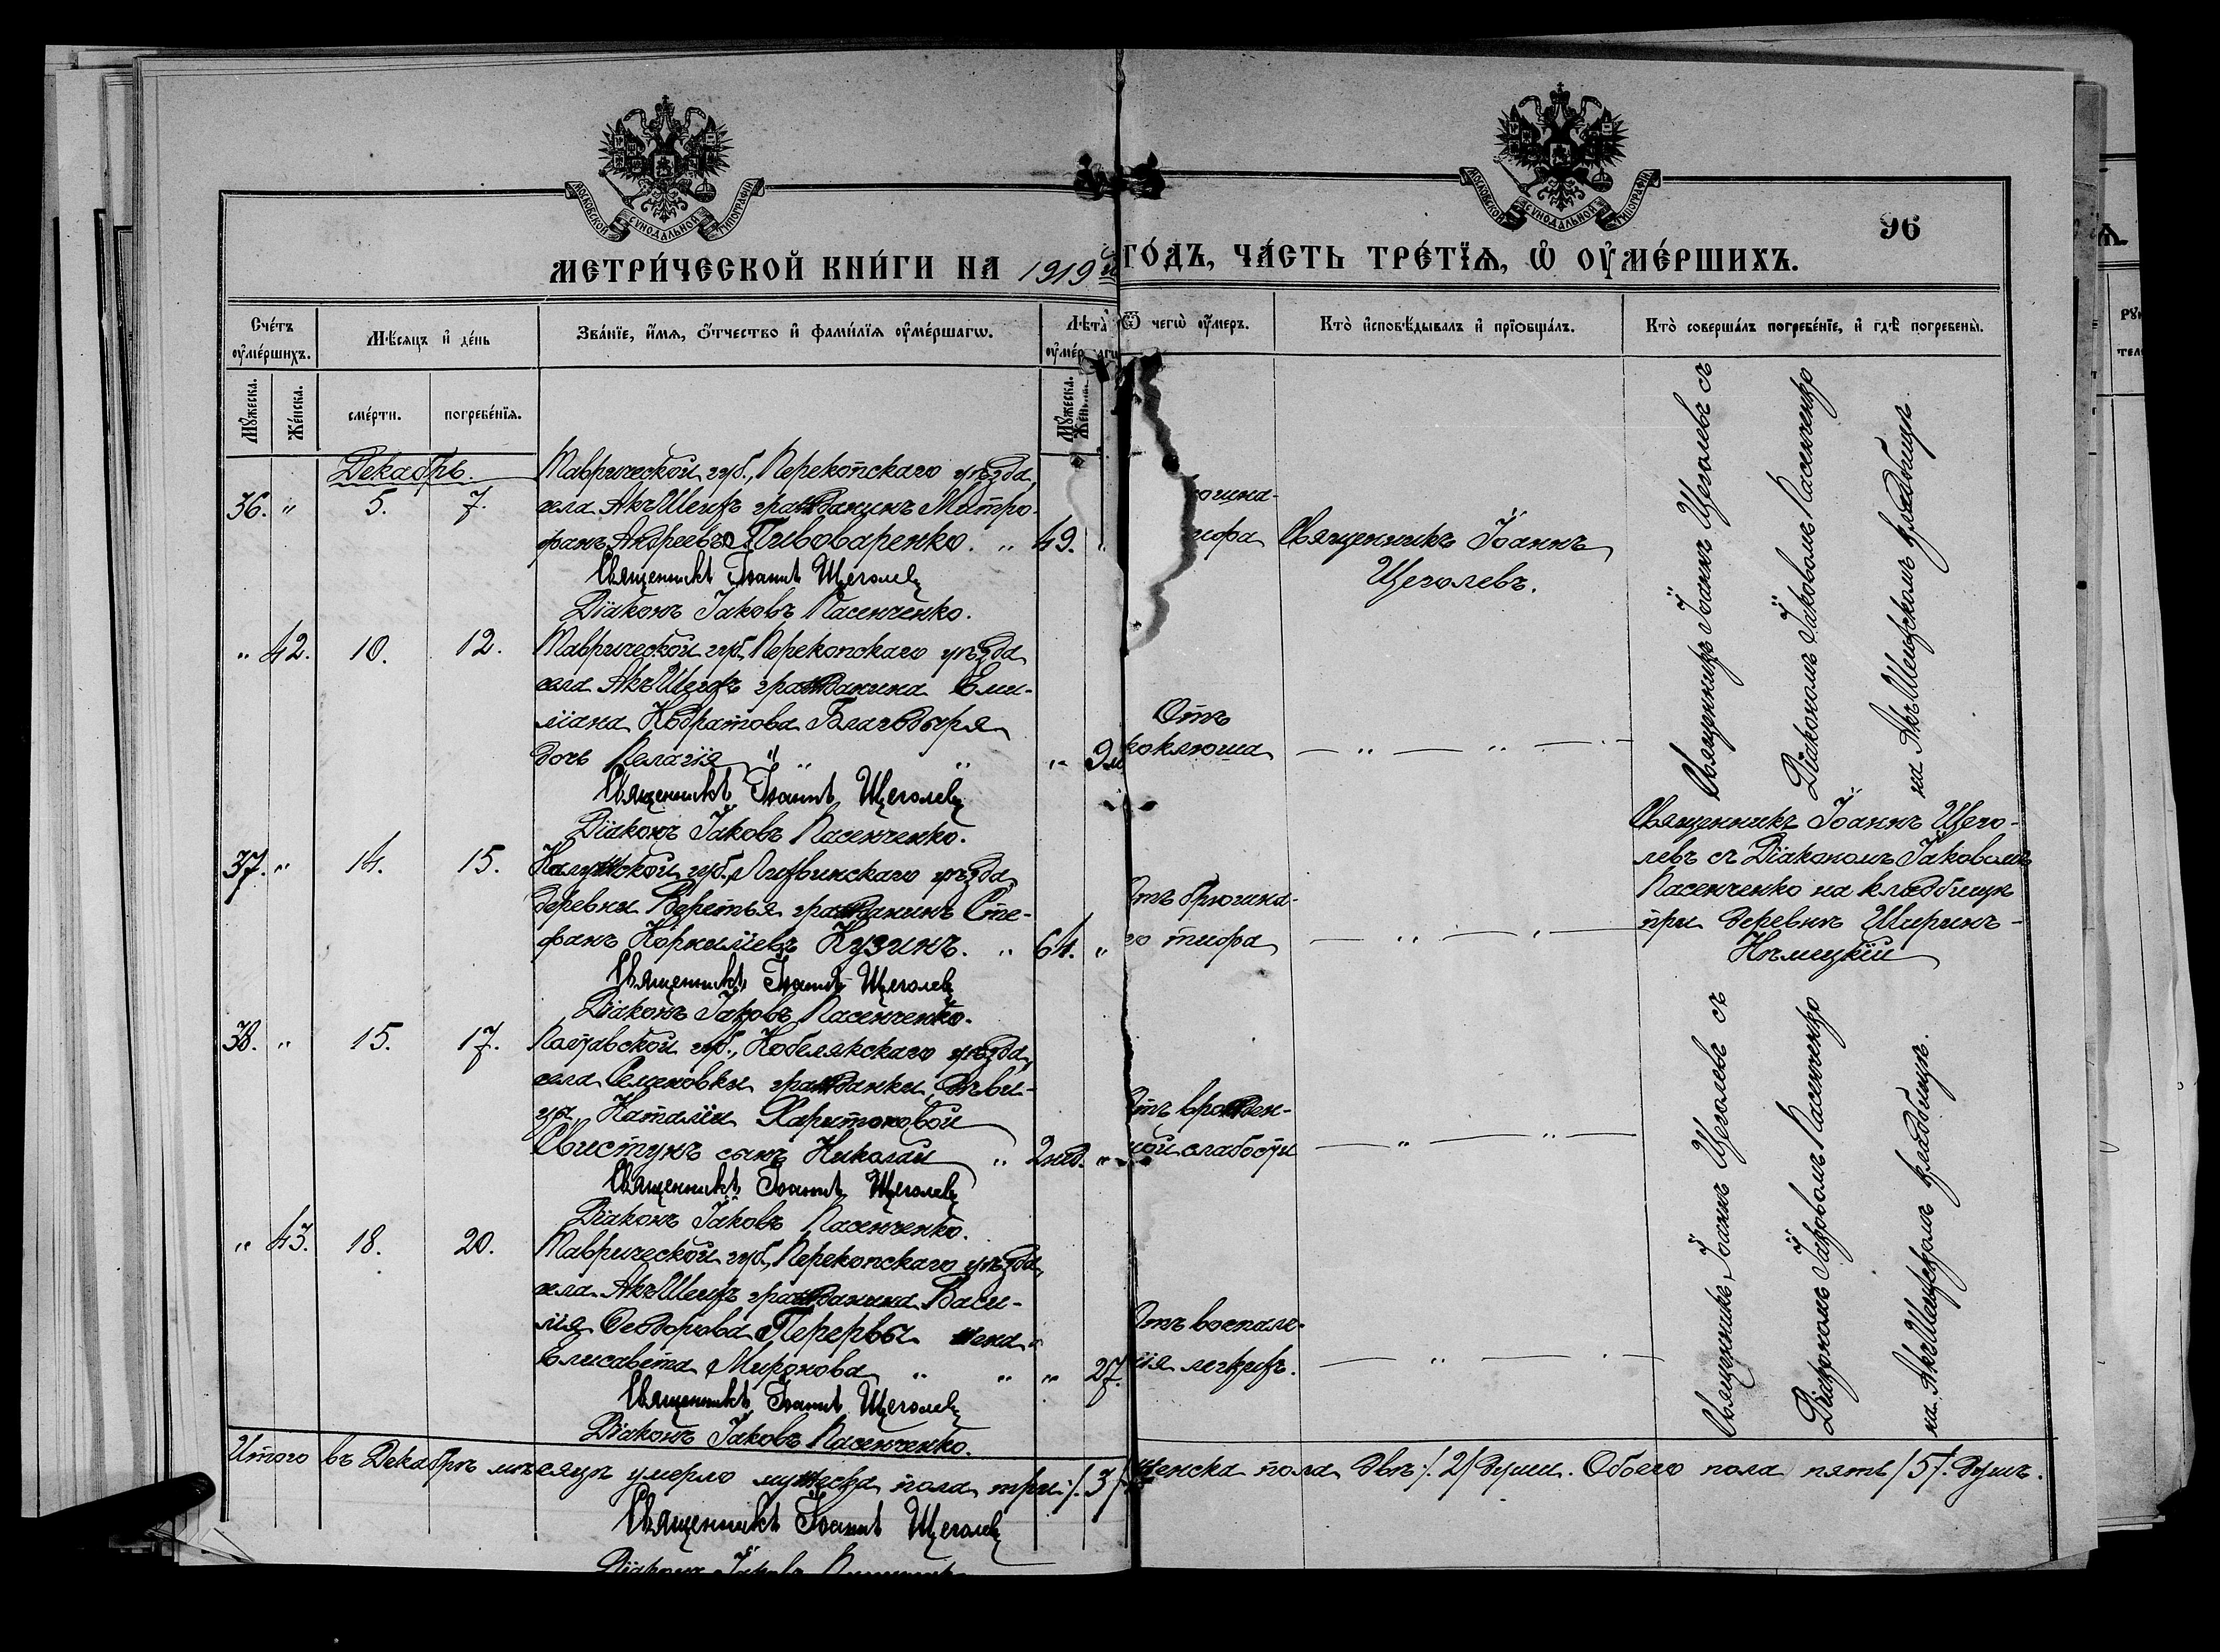 МОСКОВСКОЙ СѴНОДАЛЬНОЙ ТИПОГРАФІИ
МОСКОВСКОЙ СѴНОДАЛЬНОЙ ТИПОГРАФІИ
96
МЕТРИ́ЧЕСКОЙ КНИ́ГИ НА 1919 й ГО́ДЪ, ЧА́СТЬ ТРЕ́ТЇѦ, Ѿ ОУ҆МЕ́РШИХЪ.
Сче́тъ оу҆ме́ршихъ.
Мѣ́сяцъ и҆ де́нь
Зва́нїе, и҆́мѧ, ѻ҆́тчество и҆ фами́лїѧ оу҆ме́ршагѡ.
Лѣ́та оу҆ме́ршагѡ
Ѿ чегѡ̀ оу҆́меръ.
Кто̀ и҆сповѣ́дывалъ и҆ прїѡбща́лъ.
Кто̀ соверша́лъ погребе́нїе, и҆ гдѣ̀ погребены̀.
Мꙋ́жеска.
Же́нска.
сме́рти.
погребе́нїѧ.
Мꙋ́жеска.
Же́нска.
Декабрь.
36. " 5. 7.
Таврической губ., Перекопскаго уѣзда,
села Акъ-Шеихъ гражданинъ Митро-
фанъ Андреевъ Пивоваренко. " 49. "
Священникъ Іоаннъ Щеголевъ
Діаконъ Іаковъ Пасенченко.
тифа
Священникъ Іоаннъ
Щеголевъ.
Священникъ Іоаннъ Щеголевъ съ
Діакономъ Іаковомъ Пасенченко
на Акъ-Шеихскомъ кладбищѣ.
" 42. 10. 12.
Таврической губ., Перекопскаго уѣзда
села Акъ-Шеихъ гражданина Еми-
ліана Кодратова Благодыря
дочь Пелагія " " " " 9м
Священникъ Іоаннъ Щеголевъ
Діаконъ Іаковъ Пасенченко.
Отъ
коклюша
— " — " — " —
37. " 14. 15.
Калужской губ., Лихвинскаго уѣзда,
деревни Веретья гражданинъ Сте-
фанъ Корниліевъ Кузинъ. " 64. "
Священникъ Іоаннъ Щеголевъ
Діаконъ Іаковъ Пасенченко.
Отъ брюшна-
го тифа
— " — " —
Священникъ Іоаннъ Щего-
левъ съ Діакономъ Іаковомъ
Пасенченко на кладбищѣ
при деревнѣ Ширинъ-
Нѣмецкій
38. " 15. 17.
Полтавской губ., Кобелякскаго уѣзда,
села Семеновки гражданки, дѣви-
цы Наталіи Харитоновой
Свистунъ сынъ Николай " 2нед. "
Священникъ Іоаннъ Щеголевъ
Діаконъ Іаковъ Пасенченко.
Отъ врожден-
ной слабости
— " — " —
Священникъ Іоаннъ Щеголевъ съ
Діакономъ Іаковомъ Пасенченко
на Акъ-Шеихскомъ кладбищѣ.
" 43. 18. 20.
Таврической губ., Перекопскаго уѣзда,
села Акъ-Шеихъ гражданина Васи-
лія Ѳеодорова Перервы жена
Елисавета Миронова " " " 27.
Священникъ Іоаннъ Щеголевъ
Діаконъ Іаковъ Пасенченко.
Отъ воспале-
нія легкихъ.
— " — " —
Итого въ Декабрѣ мѣсяцѣ умерло мужеска пола три /3/ женска пола двѣ /2/ души. Обоего пола пять /5/ душъ.
Священникъ Іоаннъ Щеголевъ
Діаконъ Іаковъ Пасенченко